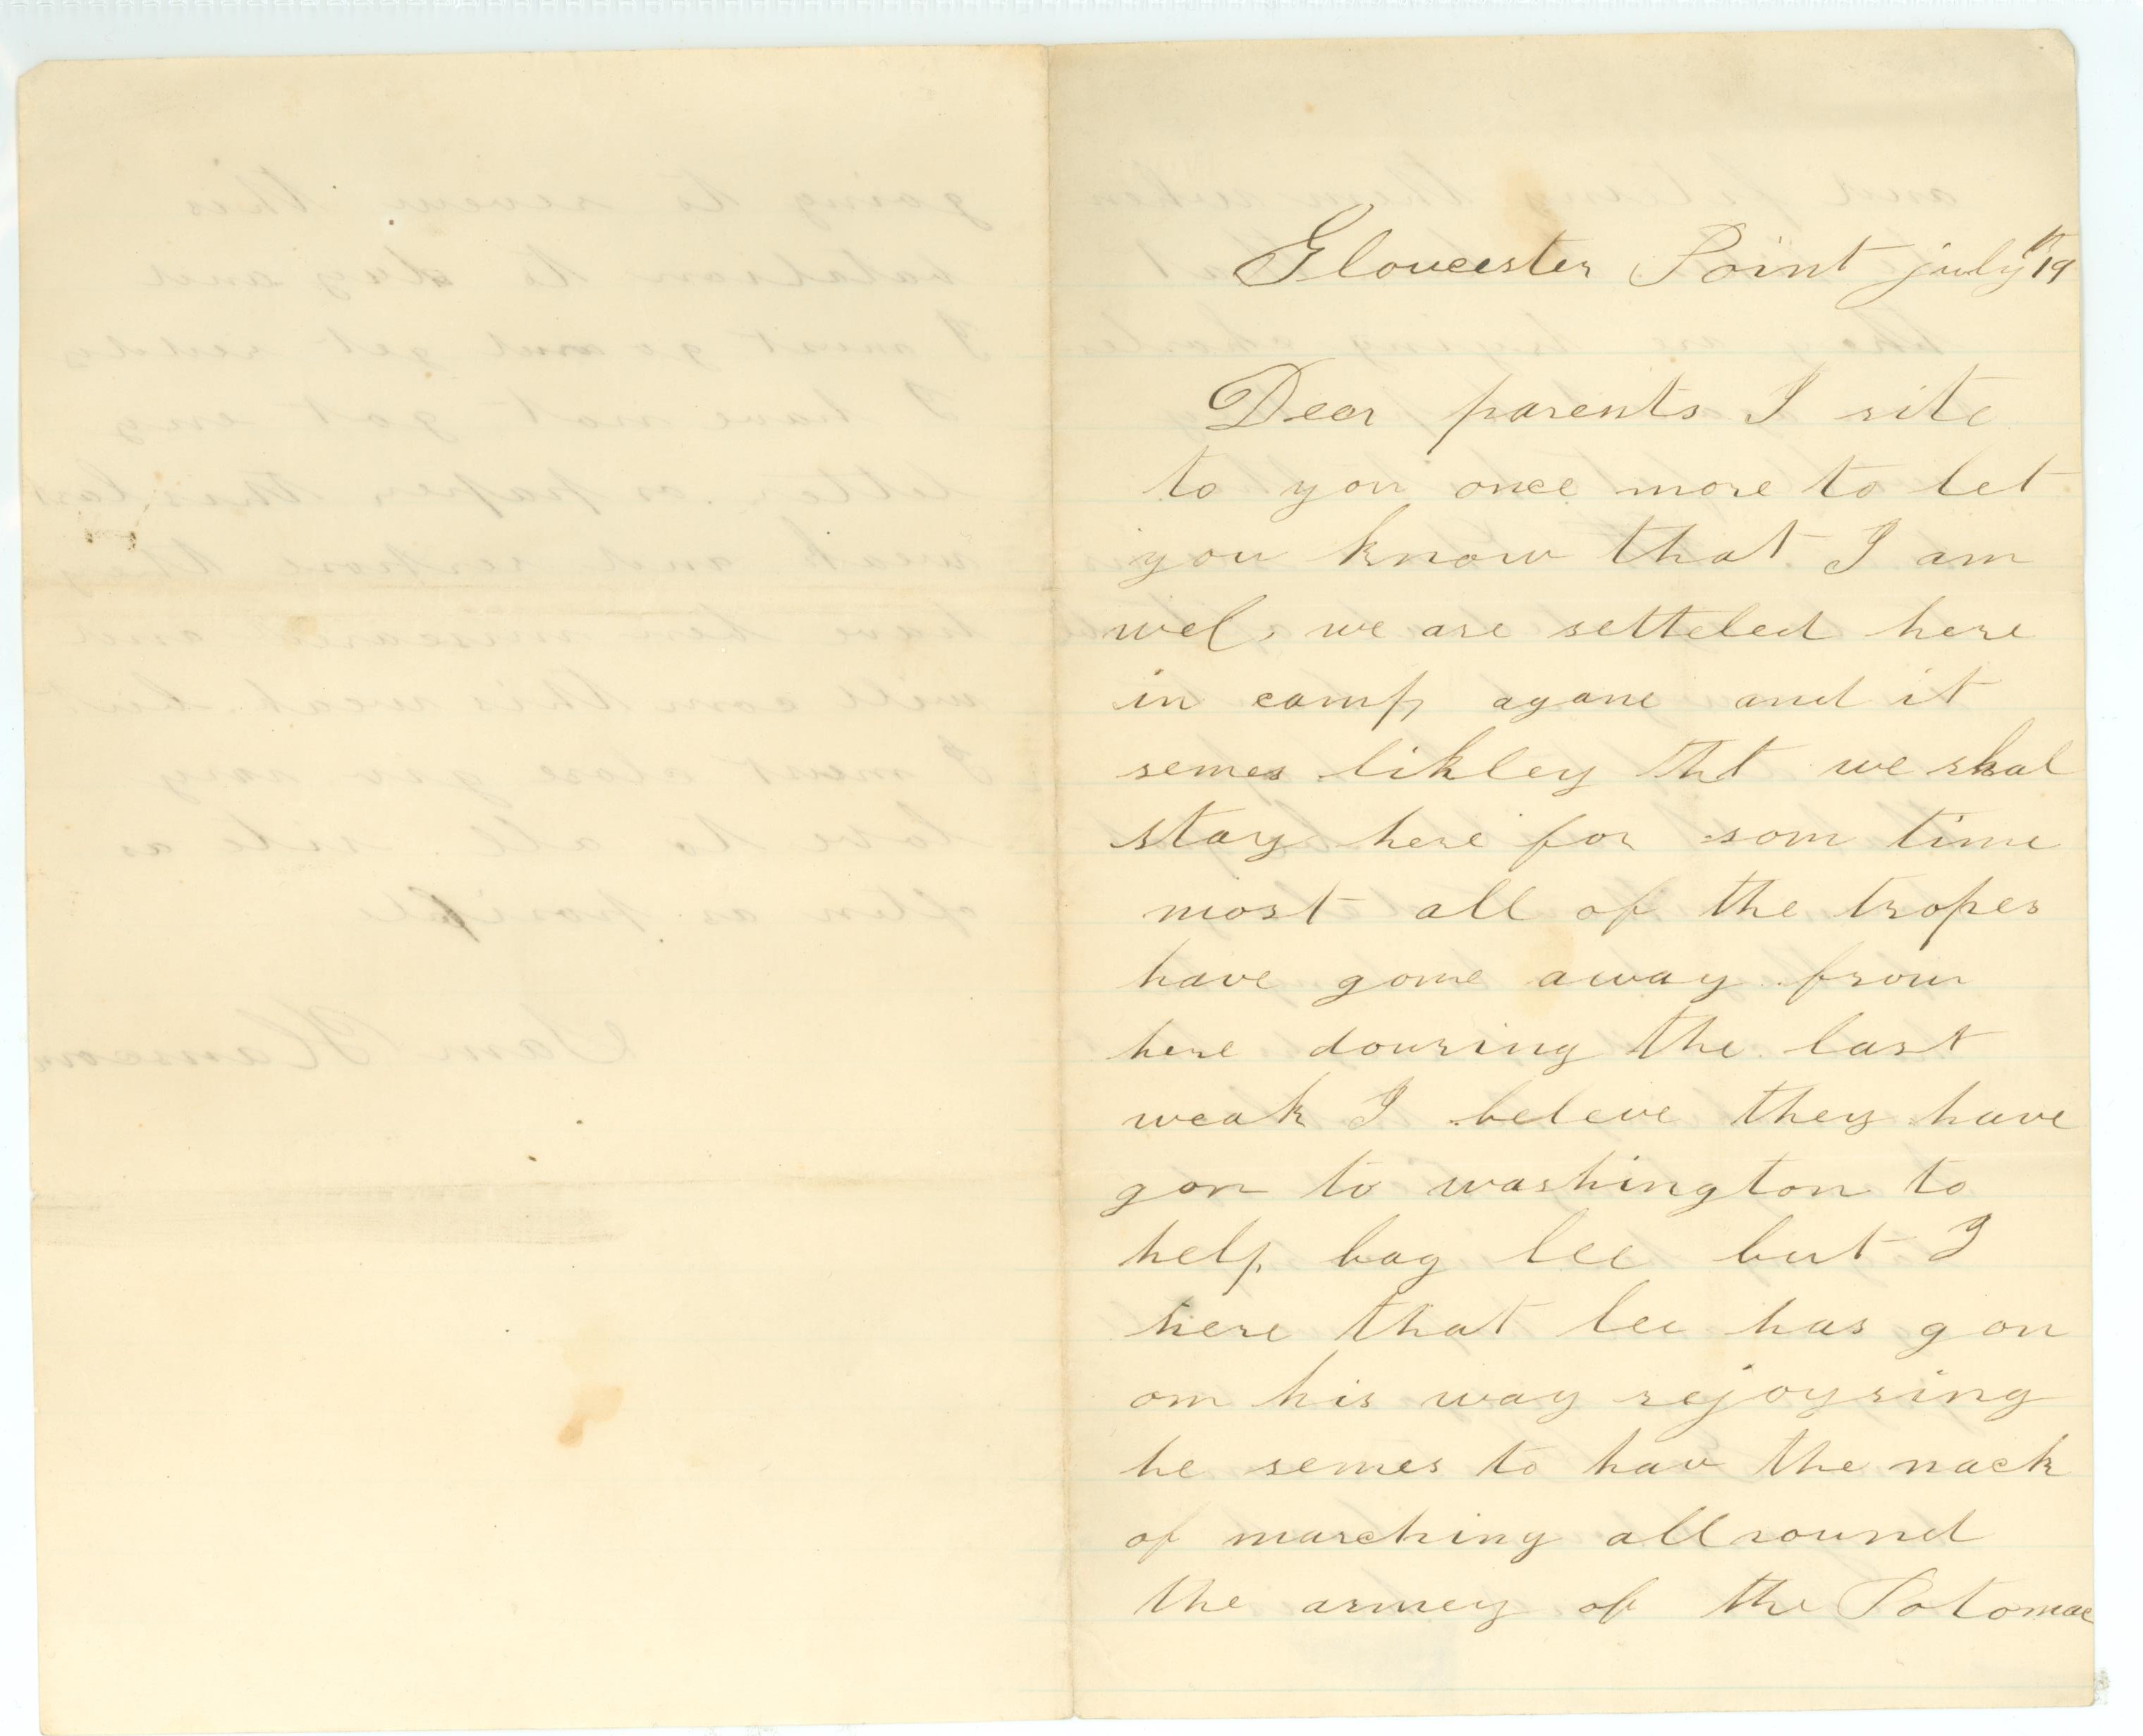 Gloucester Point july 19th
Dear parents I rite
to you once more to let
you know that I am
wel, we are setteled here
in camp agane and it
semes likley tht we shal
stay here for som time
most all of the tropes
have gone away from
here douring the last
weak I beleve they have
gon to washington to
help bag lee but I
here that lee has gon
on his way rejoysing
he semes to hav the nack
of marching allround
the armey of the Potomac